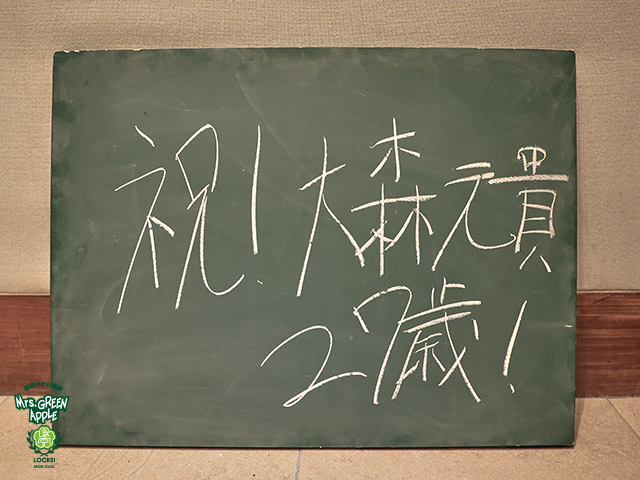 祝!大森元貴
27歳!
Mrs. GREEN
APPLE
LOCKS!